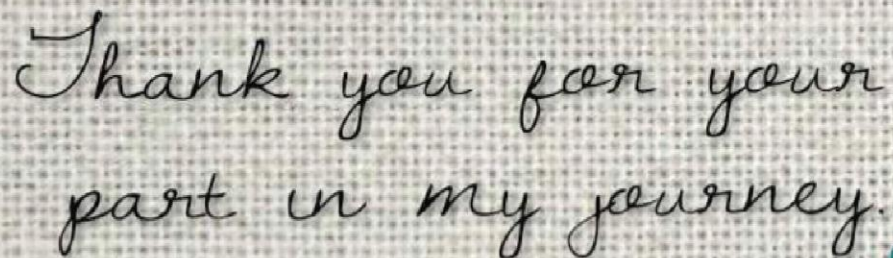 Thank you for your
part in my journey.